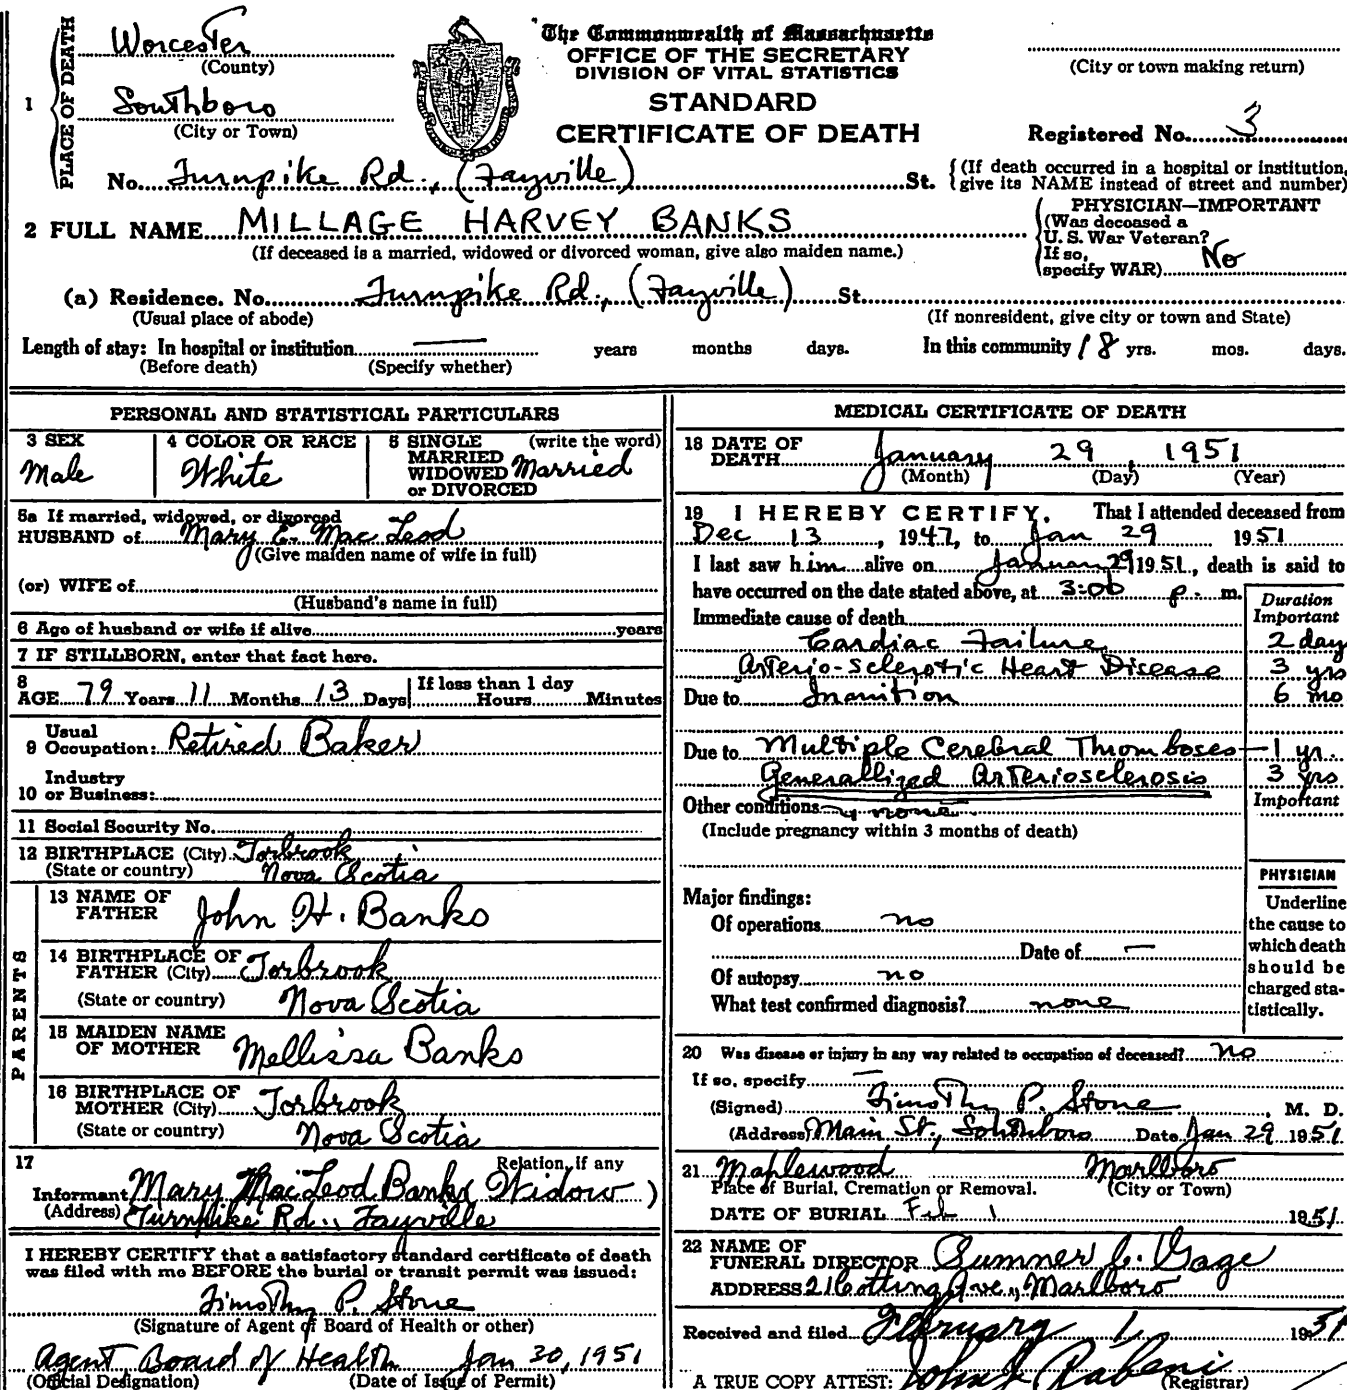 PLACE OF DEATH
1
Worcester
(County)
Southboro
(City or Town)
The Commonwealth of Massachusetts
OFFICE OF THE SECRETARY
DIVISION OF VITAL STATISTICS
STANDARD
CERTIFICATE OF DEATH
(City or town making return)
Registered No. 3
No. Turnpike Rd., (Fayville) St. {(If death occurred in a hospital or institution,
give its NAME instead of street and number)
2 FULL NAME MILLAGE HARVEY BANKS
(If deceased is a married, widowed or divorced woman, give also maiden name.)
PHYSICIAN—IMPORTANT
(Was deceased a
U. S. War Veteran?
If so,
specify WAR) No
(a) Residence. No. Turnpike Rd., (Fayville) St.
(Usual place of abode)
(If nonresident, give city or town and State)
Length of stay: In hospital or institution — years months days. In this community 18 yrs. mos. days.
(Before death) (Specify whether)
PERSONAL AND STATISTICAL PARTICULARS
3 SEX
Male
4 COLOR OR RACE
White
5 SINGLE (write the word)
MARRIED
WIDOWED Married
or DIVORCED
5a If married, widowed, or divorced
HUSBAND of Mary E. MacLeod
(Give maiden name of wife in full)
(or) WIFE of
(Husband's name in full)
6 Age of husband or wife if alive years
7 IF STILLBORN, enter that fact here.
8
AGE 79 Years 11 Months 13 Days
If less than 1 day
Hours Minutes
Usual
9 Occupation: Retired Baker
Industry
10 or Business:
11 Social Security No.
12 BIRTHPLACE (City) Torbrook
(State or country) Nova Scotia
PARENTS
13 NAME OF
FATHER John H. Banks
14 BIRTHPLACE OF
FATHER (City) Torbrook
(State or country) Nova Scotia
15 MAIDEN NAME
OF MOTHER Mellissa Banks
16 BIRTHPLACE OF
MOTHER (City) Torbrook
(State or country) Nova Scotia
17 Relation, if any
Informant Mary MacLeod Banks (Widow)
(Address) Turnpike Rd., Fayville
I HEREBY CERTIFY that a satisfactory standard certificate of death
was filed with me BEFORE the burial or transit permit was issued:
Timothy P. Stone
(Signature of Agent of Board of Health or other)
Agent Board of Health Jan 30, 1951
(Official Designation) (Date of Issue of Permit)
MEDICAL CERTIFICATE OF DEATH
18 DATE OF
DEATH January 29, 1951
(Month) (Day) (Year)
19 I HEREBY CERTIFY, That I attended deceased from
Dec 13, 1947, to Jan 29 1951
I last saw him alive on January 29 1951, death is said to
have occurred on the date stated above, at 3:06 p. m.
Duration
Important
Immediate cause of death
Cardiac Failure 2 days
Arterio-sclerotic Heart Disease 3 yrs
Due to Inanition 6 mo
Due to Multiple Cerebral Thromboses — 1 yr.
Generallized Arteriosclerosis 3 yrs
Other conditions none Important
(Include pregnancy within 3 months of death)
Major findings:
Of operations no
Date of —
Of autopsy no
What test confirmed diagnosis? none
PHYSICIAN
Underline
the cause to
which death
should be
charged sta-
tistically.
20 Was disease or injury in any way related to occupation of deceased? no
If so, specify —
(Signed) Timothy P. Stone, M. D.
(Address) Main St., Southboro Date Jan 29 1951
21 Maplewood Marlboro
Place of Burial, Cremation or Removal. (City or Town)
DATE OF BURIAL Feb 1 1951
22 NAME OF
FUNERAL DIRECTOR Sumner C. Gage
ADDRESS 21 Cotting Ave., Marlboro
Received and filed February 1, 1951
A TRUE COPY ATTEST: John J.
(Registrar)